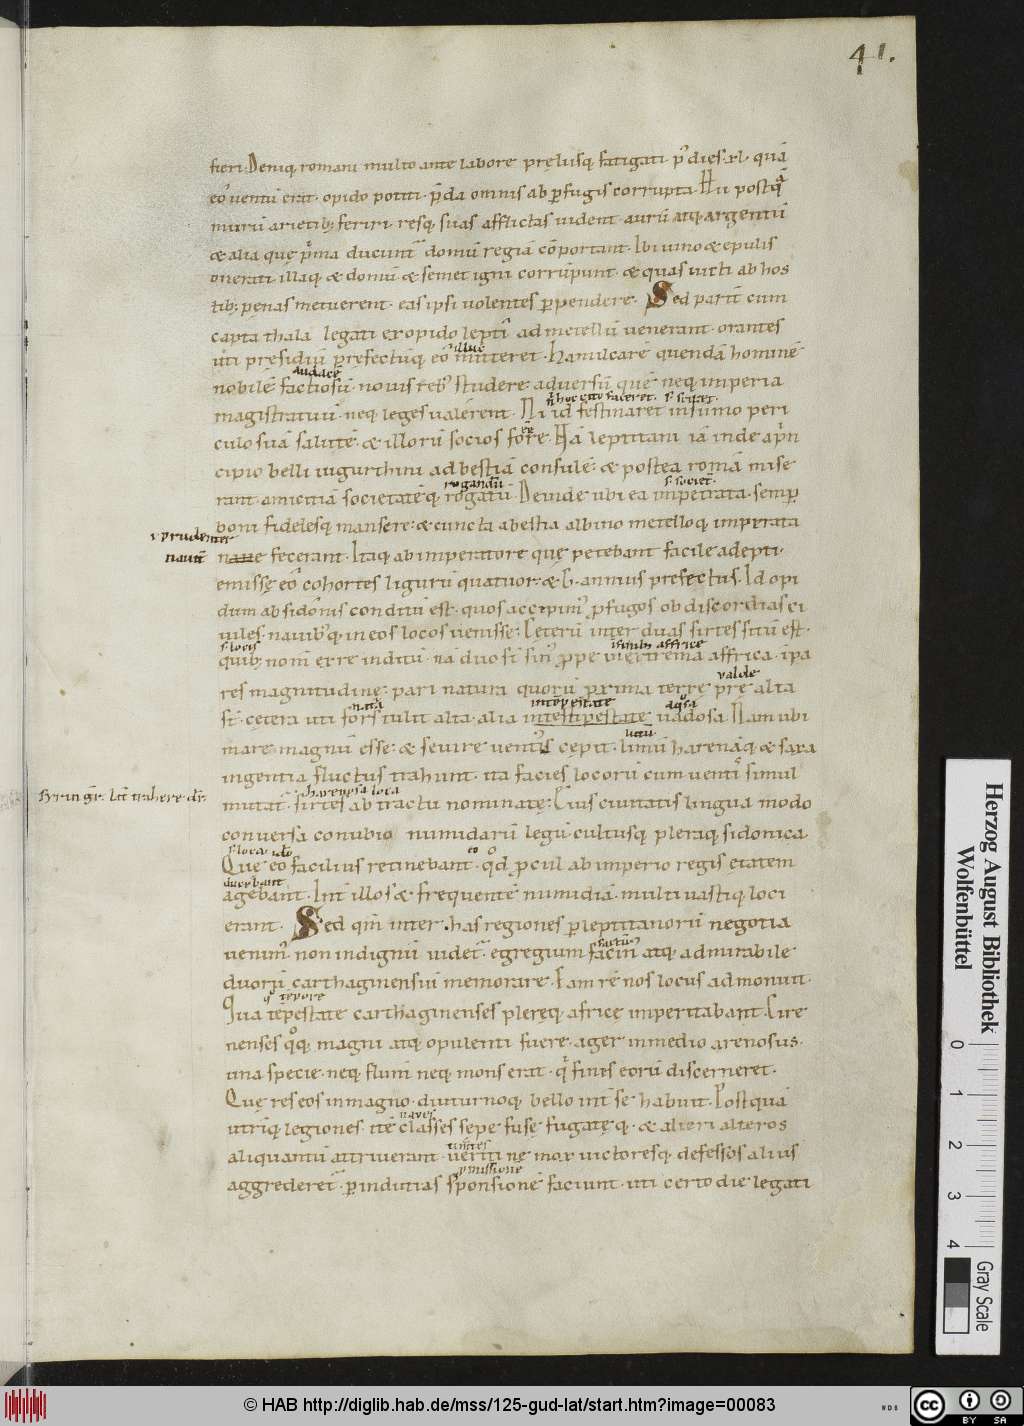 41.
fieri. Deniq; romani multo ante labore pręlusq; fatigati. p̄ dies .xl. quā
eo ventū erat. opido potiti. p̄da omnis ab pfugis corrupta. Hii postq̄
murū arietib; feriri. resq; suas afflictas vident. aurū atq; argentū
& alia quę p̄ma ducunt̄ domū regiā cōportant. Ibi vino & epulis
onerati. illaq; & domū & semet igni corrūpunt. & quas victi ab hos
tib; penas metuerent. eas ipsi volentes pependere. Sed parit̄ cum
capta thala legati ex opido lepti ad metellū venerant. orantes
illuc
uti presidiū prefectūq; eo mitteret. Hamilcarē quendā hominē
audacē
nobilē factiosū. novis reb; studere. adversū quē neq; imperia
ñ hoc cito faceret.
magistratuū. neq; leges valerent. Ni id festinaret in sumo peri
eē
culo suā salutē. & illorū socios fore. Nā leptitani iā inde a p̄n
cipio belli iugurthini ad bestiā consulē. & postea romā mise
rogandū s. societ.
rant. amicitiā societatēq; rogatū. Deinde ubi ea impetrata. semp
boni fidelesq; mansere. & cuncta a bestia albino metelloq; imperata
i. prudenter
navit̄
nave fecerant. Itaq; ab imperatore quę petebant facile adepti.
emissę eo cohortes ligurū quatuor. & G. annius prefectus. Id opi
dum ab sidoniis conditū est. quos accipim̄ pfugos ob discordias ci
viles. navib; q; in eos locos venisse. Ceterū inter duas sirtes sitū est.
s. locis in finib; affrice
quib; nomē ex re inditū. nā duo s̄t sin̄ ppe in extrema affrica. ipa
valde
res magnitudine. pari natura quorū pxima terrę prę alta
natā intēpestate aquosa
s̄t. cetera uti fors tulit alta. alia in tēpestate vadosa. Nam ubi
mare magnū esse. & sevire ventis cepit. limū harenāq; & saxa
ingentia fluctus trahunt. ita facies locorū cum ventis simul
syrin gr̄. lat̄ trahere dr̄. harenosa loca
mutat̄. sirtes ab tractu nominatę. Eius civitatis lingua modo
conversa conubio numidarū. legū cultusq; pleraq; sidonica
s. loca ideo
Quę eo facilius retinebant. qđ pcul ab imperio regis ętatem
ducebant
agebant. Int̄ illos & frequentē numidiā. multi vastiq; loci
erant. Sed qm̄ inter has regiones p leptitanorū negotia
factū
venim̄ non indignū videt̄. egregium facin̄ atq; admirabile
duorū carthaginensiū memorare. Eam rē nos locus admonuit.
q̄ tēpore
Qua tēpestate carthaginenses pleręq; africę imperitabant. Cire
nenses q̊q; magni atq; opulenti fuere. ager in medio arenosus.
una specie. neq; flum̄ neq; mons erat. q̄ fines eorū discerneret.
Quę res eos in magno. diuturnoq; bello int̄ se habuit. Postquā
naves
utriq; legiones. itē classes sepe fusę fugatęq;. & alteri alteros
timentes
aliquantū attriverant. veriti ne mox victoresq; defessos alius
pmissione
aggrederet̄. p indutias sponsionē faciunt. uti certo die legati
Herzog August Bibliothek
Wolfenbüttel
0 1 2 3 4
Gray Scale
© HAB http://diglib.hab.de/mss/125-gud-lat/start.htm?image=00083
WDB
cc BY SA